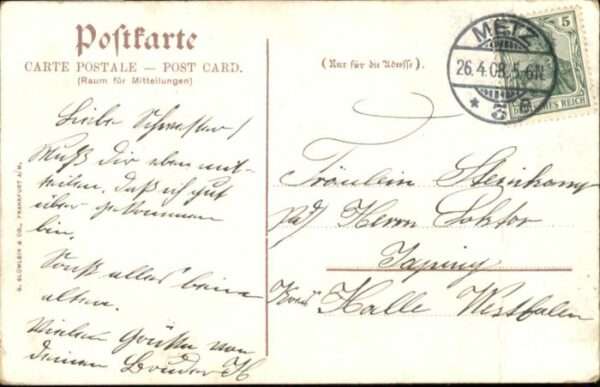 Postkarte
CARTE POSTALE — POST CARD.
(Raum für Mitteilungen)
Liebe Schwester!
Muß Dir eben mit-
teilen, daß ich gut
über gekommen
bin.
Sonst alles beim
alten.
Vielen Grüße von
deinen Bruder H
G. BLÜMLEIN & CO., FRANKFURT A/M.
(Nur für die Adresse).
METZ
26.4.08. 5-6N.
* 3 e
5
DEUTSCHES REICH
Fräulein Steinkamp
p/ad Herrn Doktor
Taping
Kreis Halle Westfalen